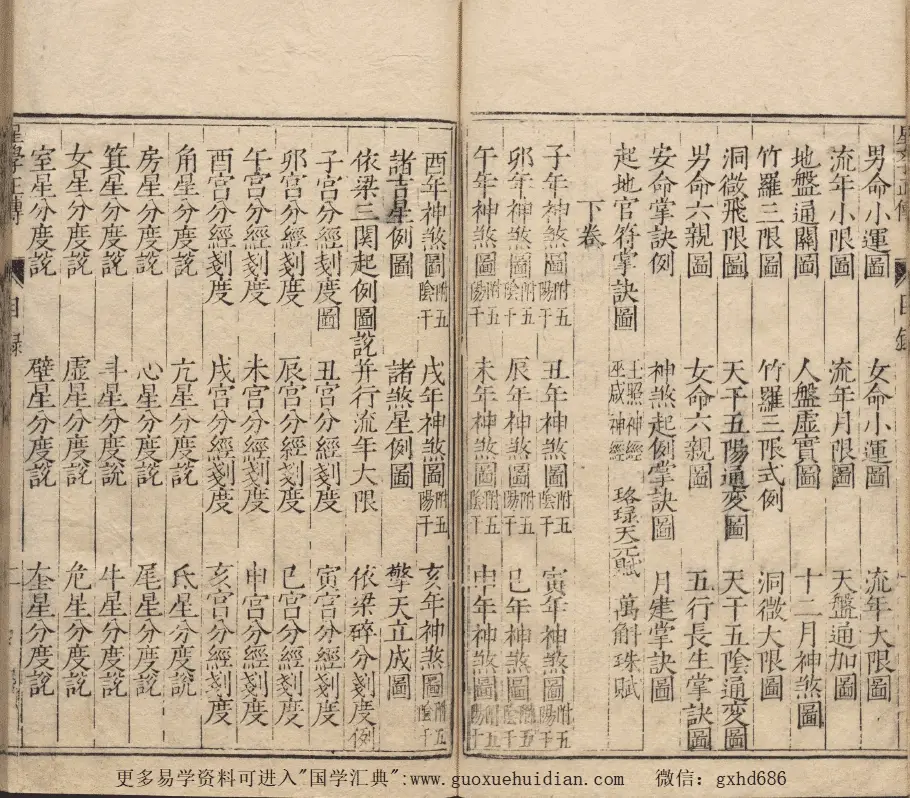 男命小運圖 女命小運圖 流年大限圖
流年小限圖 流年月限圖 天盤通加圖
地盤通關圖 人盤虛實圖 十二月神煞圖
竹羅三限圖 竹羅三限式例 洞微大限圖
洞微飛限圖 天干五陽通变圖 天干五陰通变圖
男命六親圖 女命六親圖 五行長生掌訣圖
安命掌訣例 神煞起例掌訣圖 月建掌訣圖
起地官符掌訣圖 玉照神經 巫咸神經 珞琭天元賦 萬斛珠賦
下卷
子年神煞圖附五陽干 丑年神煞圖附五陰干 寅年神煞圖附五陽干
卯年神煞圖附五陰干 辰年神煞圖附五陽干 巳年神煞圖附五陰干
午年神煞圖附五陽干 未年神煞圖附五陰干 申年神煞圖附五陽干
酉年神煞圖附五陰干 戌年神煞圖附五陽干 亥年神煞圖附五陰干
諸吉星例圖 諸煞星例圖 擎天立成圖
依梁三関起例圖說并行流年大限 依梁碎分刻度例
子宮分經刻度圖 丑宮分經刻度 寅宮分經刻度
卯宮分經刻度 辰宮分經刻度 巳宮分經刻度
午宮分經刻度 未宮分經刻度 申宮分經刻度
酉宮分經刻度 戌宮分經刻度 亥宮分經刻度
角星分度說 亢星分度說 氐星分度說
房星分度說 心星分度說 尾星分度說
箕星分度說 斗星分度說 牛星分度說
女星分度說 虛星分度說 危星分度說
室星分度說 壁星分度說 奎星分度說
星學正傳 目錄
更多易学资料可进入"国学汇典":www.guoxuehuidian.com 微信：gxhd686